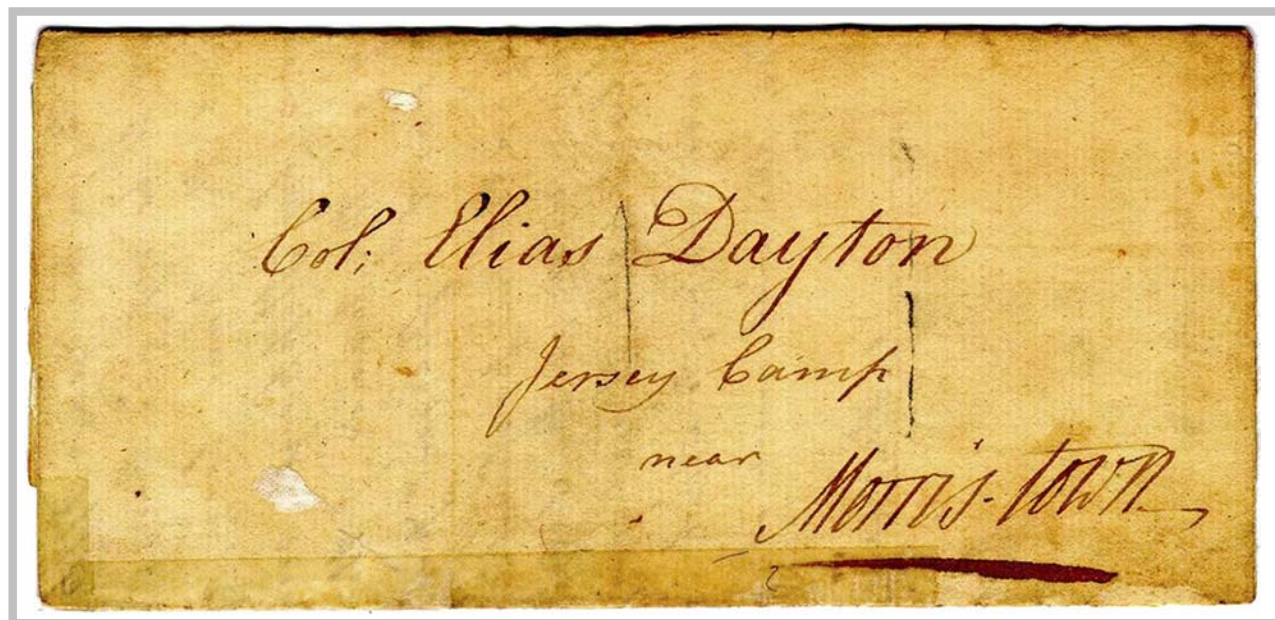 Col; Elias Dayton
Jersey Camp
near
Morris-town